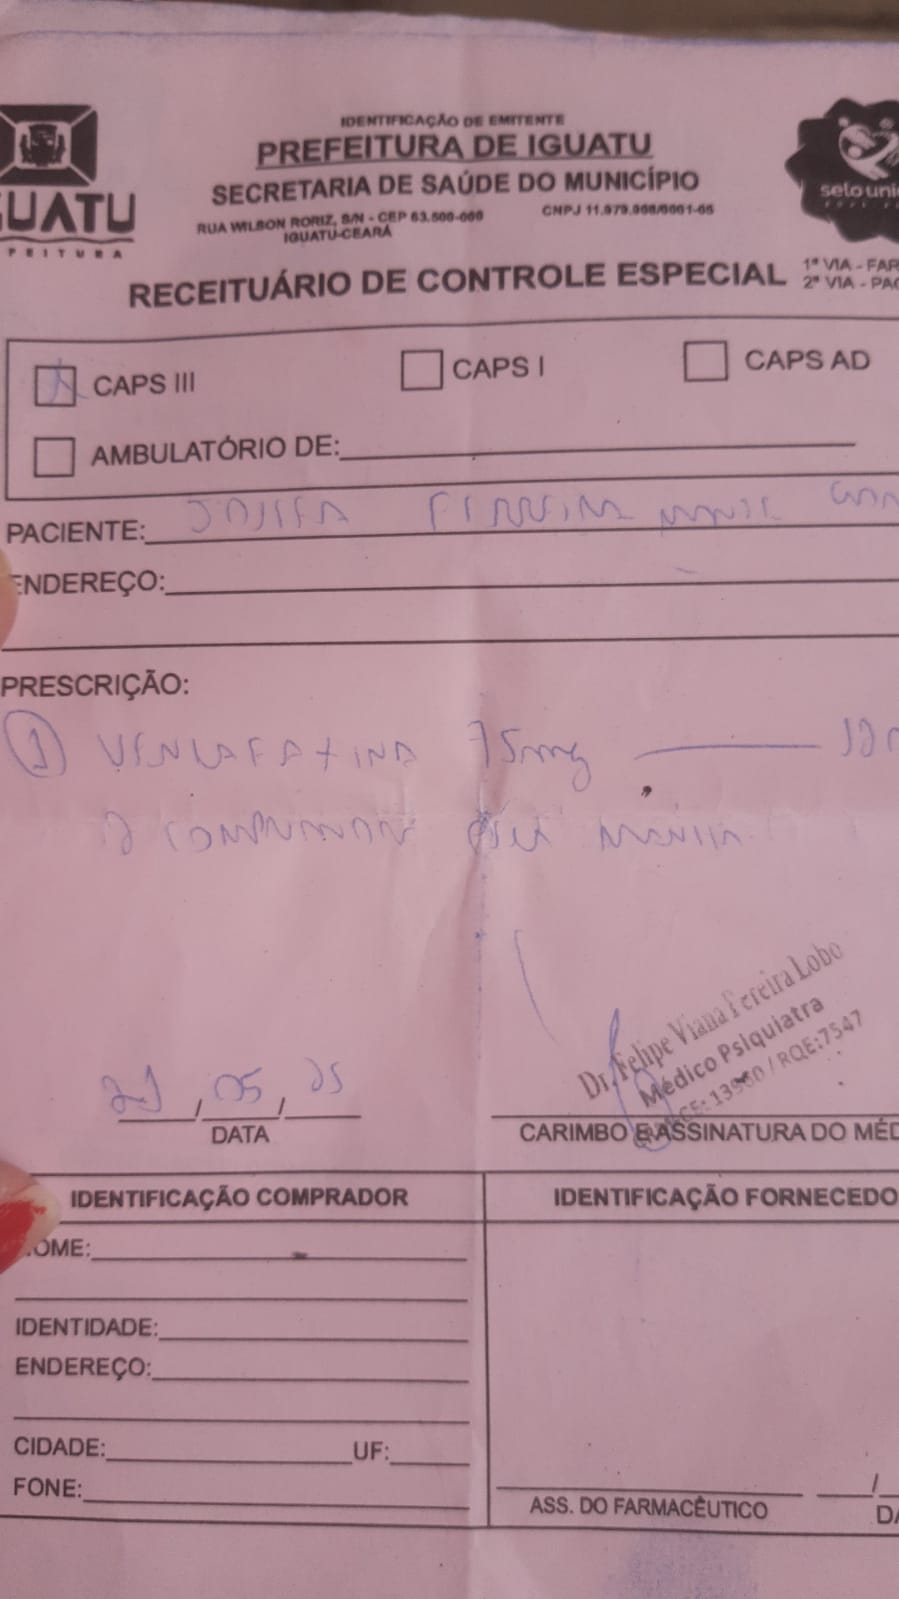 IDENTIFICAÇÃO DE EMITENTE
PREFEITURA DE IGUATU
SECRETARIA DE SAÚDE DO MUNICÍPIO
RUA WILSON RORIZ, S/N - CEP 63.500-000
IGUATU-CEARÁ
CNPJ 11.979.908/0001-65
GUATU
FEITURA
selo uni
RECEITUÁRIO DE CONTROLE ESPECIAL
1ª VIA - FAR
2ª VIA - PAC
CAPS III
CAPS I
CAPS AD
AMBULATÓRIO DE:
PACIENTE:
ENDEREÇO:
PRESCRIÇÃO:
1 VENLAFAXINA 75mg
Dr. Felipe Viana Pereira Lobo
Médico Psiquiatra
RQE:7547
05
DATA
CARIMBO E ASSINATURA DO MÉD
IDENTIFICAÇÃO COMPRADOR
NOME:
IDENTIDADE:
ENDEREÇO:
CIDADE: UF:
FONE:
IDENTIFICAÇÃO FORNECEDO
ASS. DO FARMACÊUTICO
DA